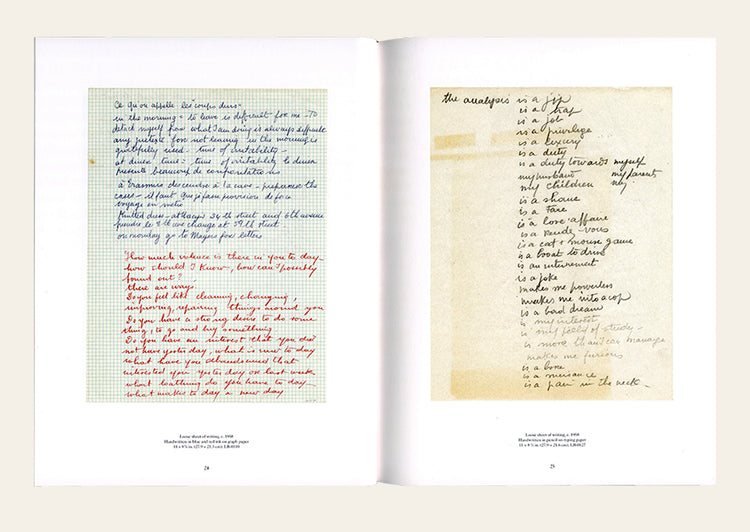 Ce qu'on appelle les "coups durs"
in the morning = to leave is difficult for me - To
detach myself from what I am doing is always difficult
any pretext for not leaving in the morning is
gratefully used - time of irritability -
at dinner time = time of irritability le diner
presente beaucoup de confrontations
à Erasmus descendre à la cave - préparer les
cases - il faut que je fasse provision de for a
voyage en metro
Knitted dress - at Macys 34 th street and 6th avenue
prendre le 8th ave change at 59th street
on monday go to Mayers for letters
How much violence is there in you to day
how should I know, how can I possibly
found out?
there are ways.
Do you feel like cleaning, changing,
improving, repairing things around you
Do you have a strong desire to do some
thing, to go and buy something
Do you have an interest that you did
not have yesterday, what is new to day
what have you abandoned that
interested you yesterday or last week
what loathing do you have to day
what makes to day a new day
Loose sheet of writing, c. 1958
Handwritten in blue and red ink on graph paper
24
the analysis is a jip
is a trap
is a job
is a privilege
is a luxury
is a duty
is a duty towards myself
my husband my parents
my children my
is a shame
is a farce
is a love affaire
is a rende-vous
is a cat + mouse game
is a boat to drive
is an internment
is a joke
makes me powerless
makes me into a cop
is a bad dream
is my interest
is my field of study -
is more than I can manage
makes me furious
is a bore
is a nuisance
is a pain in the neck -
Loose sheet of writing, c. 1958
Handwritten in pencil on typing paper
25